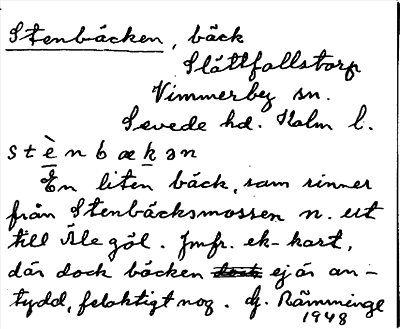 Stenbäcken, bäck
Slättfallstorp
Vimmerby sn.
Sevede hd. Kalm l.
s t è n b æ k ə n
En liten bäck, som rinner
från Stenbäcksmossen n. ut
till Åle göl. Jmfr. ek-kart,
där dock bäcken ej är an-
tydd, felaktigt nog. dj. Rämminge
1948